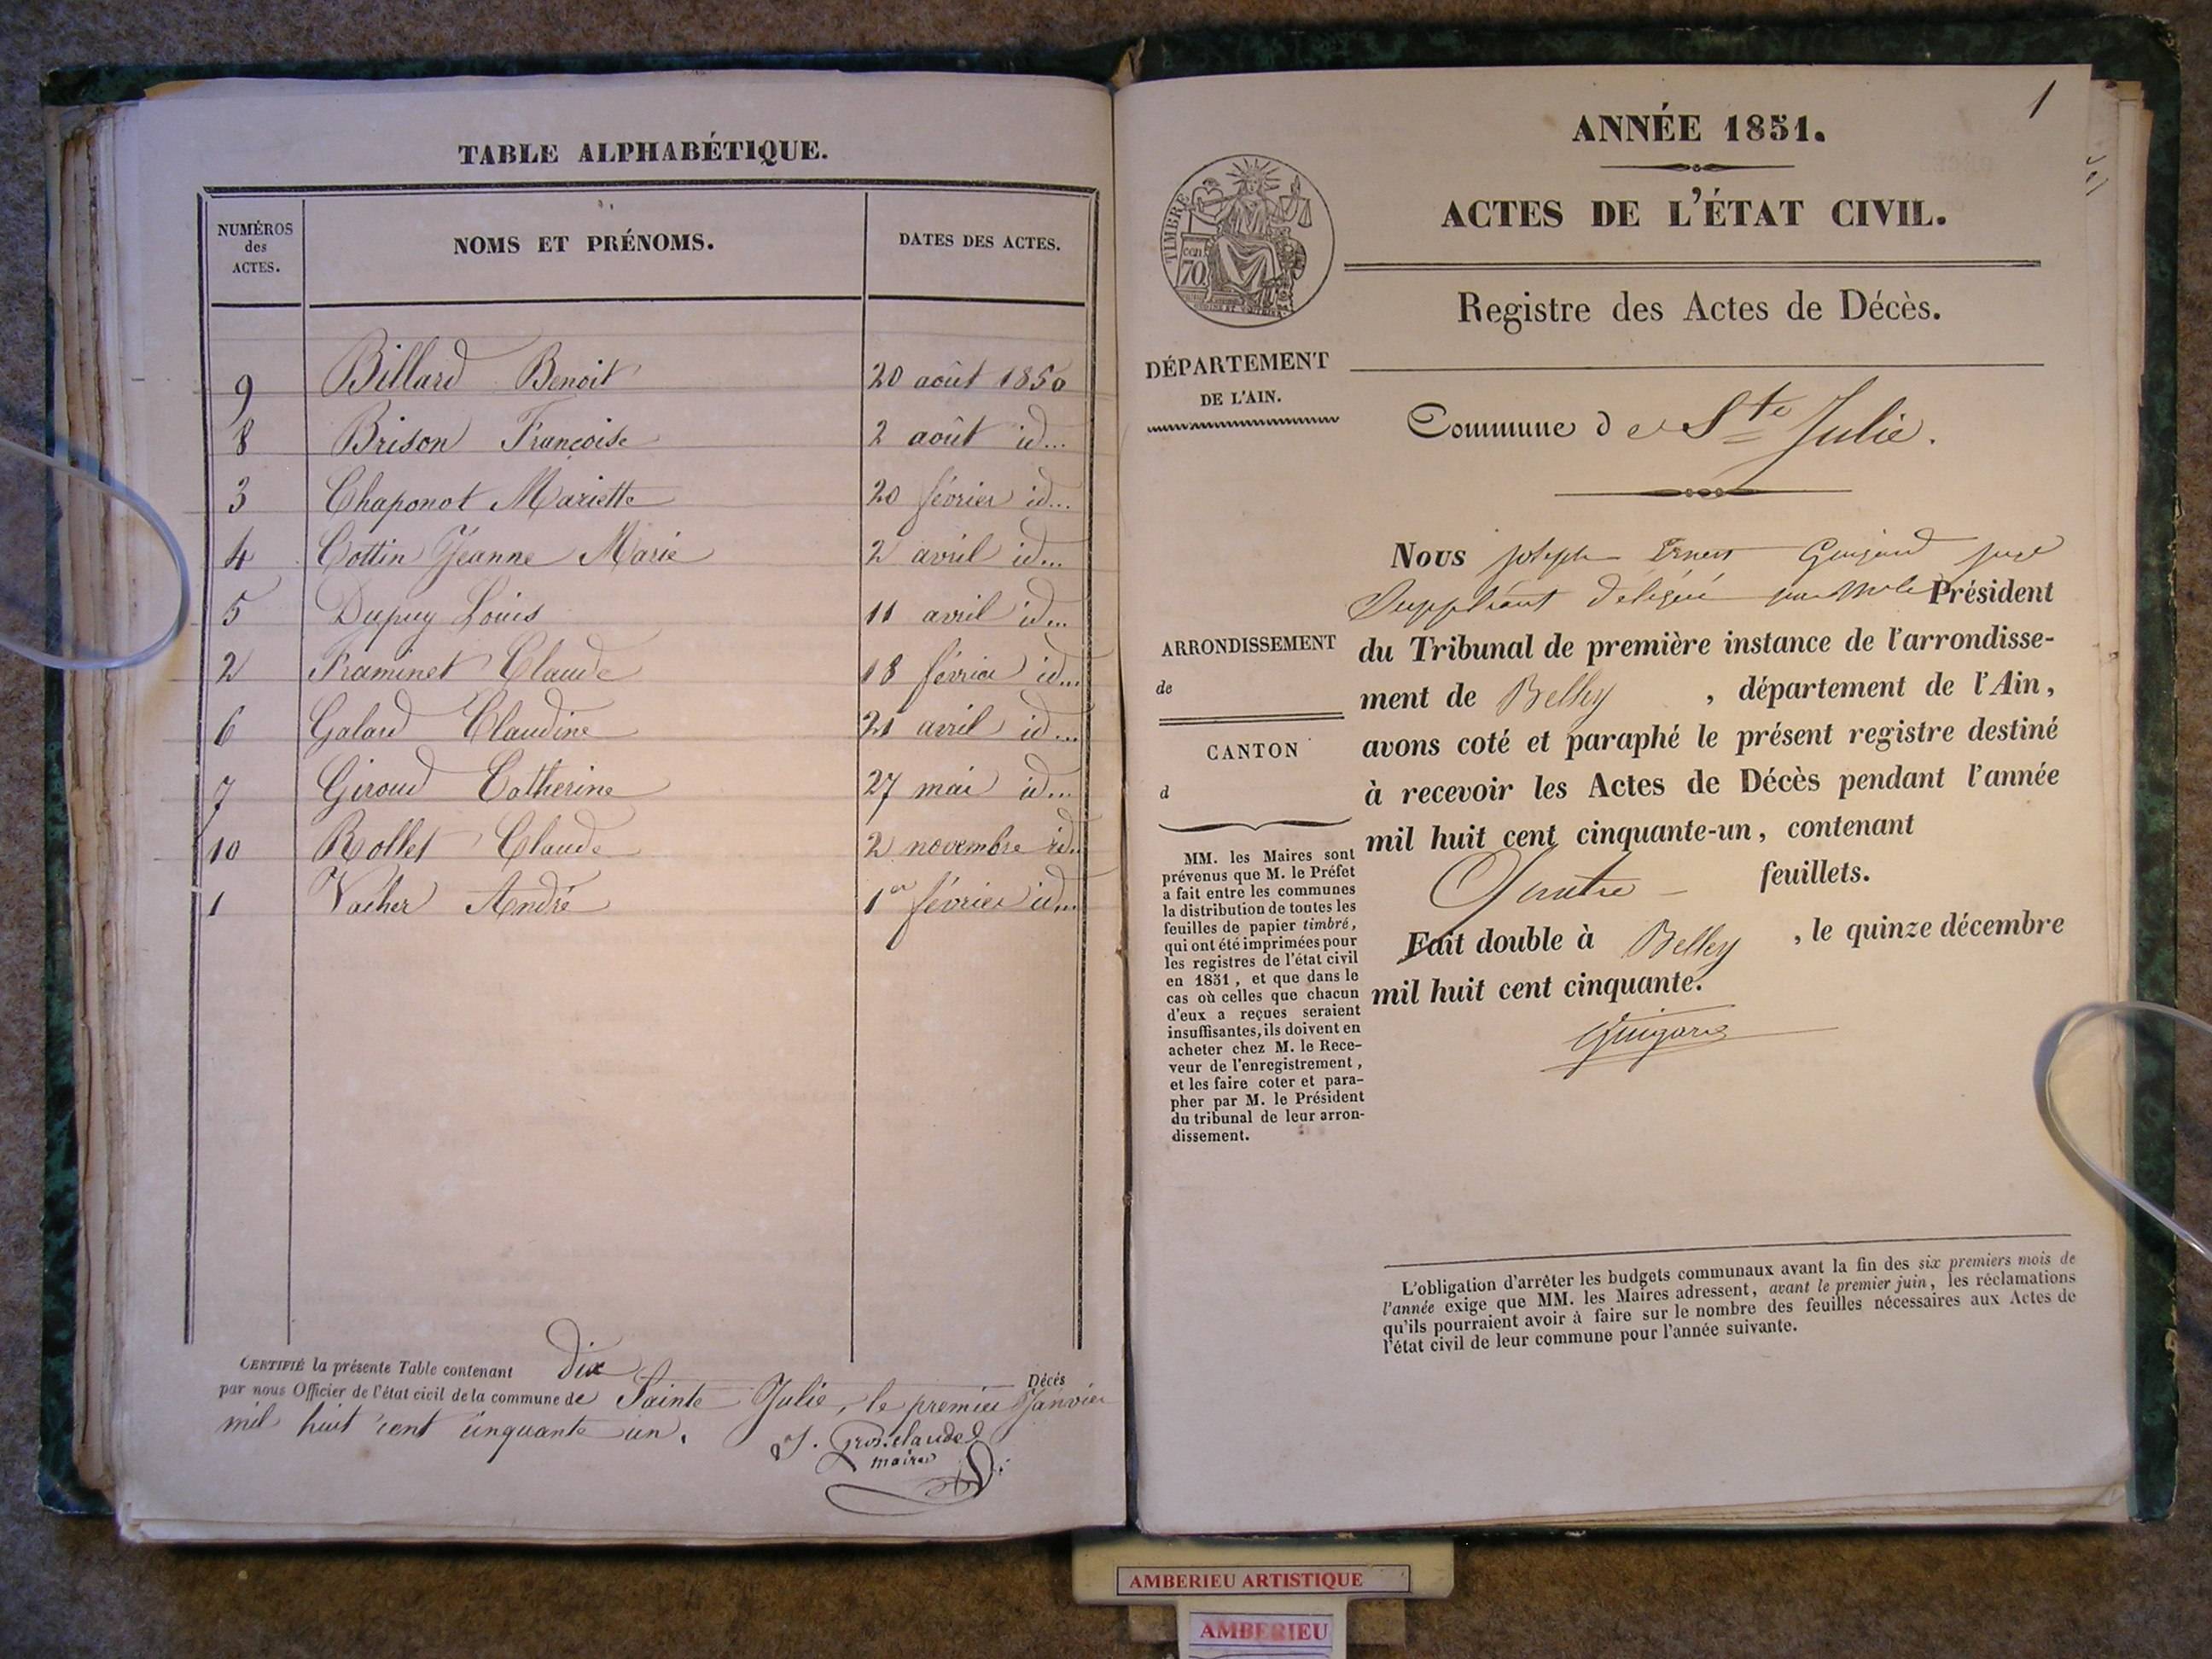 TABLE ALPHABÉTIQUE.
NUMÉROS
des
ACTES.
NOMS ET PRÉNOMS.
DATES DES ACTES.
9 Billard Benoit 20 août 1850
8 Brison Françoise 2 août id...
3 Chaponot Mariette 20 février id...
4 Cottin Jeanne Marie 2 avril id...
5 Dupuy Louis 11 avril id...
2 Framinet Claude 18 février id...
6 Galard Claudine 21 avril id...
7 Giroud Catherine 27 mai id...
10 Rollet Claude 2 novembre id..
1 Vacher André 1er février id...
CERTIFIÉ la présente Table contenant dix Décès
par nous Officier de l'état civil de la commune de Sainte Julie, le premier Janvier
mil huit cent cinquante un.
J. Grosclaude
maire
1
ANNÉE 1851.
ACTES DE L'ÉTAT CIVIL.
TIMBRE
70
Registre des Actes de Décès.
DÉPARTEMENT
DE L'AIN.
Commune de Ste Julie.
Nous Joseph Ernest Guigard juge
Suppléant délégué par Mr le Président
du Tribunal de première instance de l'arrondisse-
ment de Belley , département de l'Ain,
avons coté et paraphé le présent registre destiné
à recevoir les Actes de Décès pendant l'année
mil huit cent cinquante-un, contenant
feuillets.
Fait double à Belley , le quinze décembre
mil huit cent cinquante.
Guigard
ARRONDISSEMENT
de
CANTON
d
MM. les Maires sont
prévenus que M. le Préfet
a fait entre les communes
la distribution de toutes les
feuilles de papier timbré,
qui ont été imprimées pour
les registres de l'état civil
en 1851, et que dans le
cas où celles que chacun
d'eux a reçues seraient
insuffisantes, ils doivent en
acheter chez M. le Rece-
veur de l'enregistrement,
et les faire coter et para-
pher par M. le Président
du tribunal de leur arron-
dissement.
L'obligation d'arrêter les budgets communaux avant la fin des six premiers mois de
l'année exige que MM. les Maires adressent, avant le premier juin, les réclamations
qu'ils pourraient avoir à faire sur le nombre des feuilles nécessaires aux Actes de
l'état civil de leur commune pour l'année suivante.
AMBERIEU ARTISTIQUE
AMBERIEU